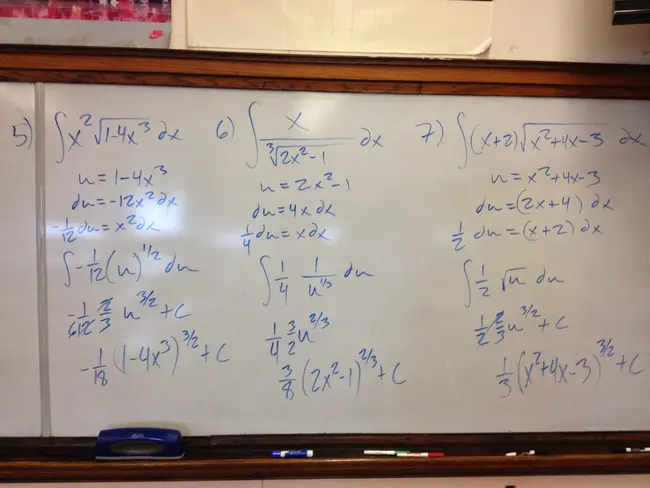 5) ∫x²√(1-4x³) dx
u = 1-4x³
du = -12x² dx
-1/12 du = x² dx
∫-1/12 (u)^(1/2) du
-1/12 2/3 u^(3/2) + C
6
-1/18 (1-4x³)^(3/2) + C
6) ∫ x/∛(2x²-1) dx
u = 2x²-1
du = 4x dx
1/4 du = x dx
∫ 1/4 1/u^(1/3) du
1/4 3/2 u^(2/3)
3/8 (2x²-1)^(2/3) + C
7) ∫(x+2)√(x²+4x-3) dx
u = x²+4x-3
du = (2x+4) dx
1/2 du = (x+2) dx
∫ 1/2 √u du
1/2 2/3 u^(3/2) + C
1/3 (x²+4x-3)^(3/2) + C